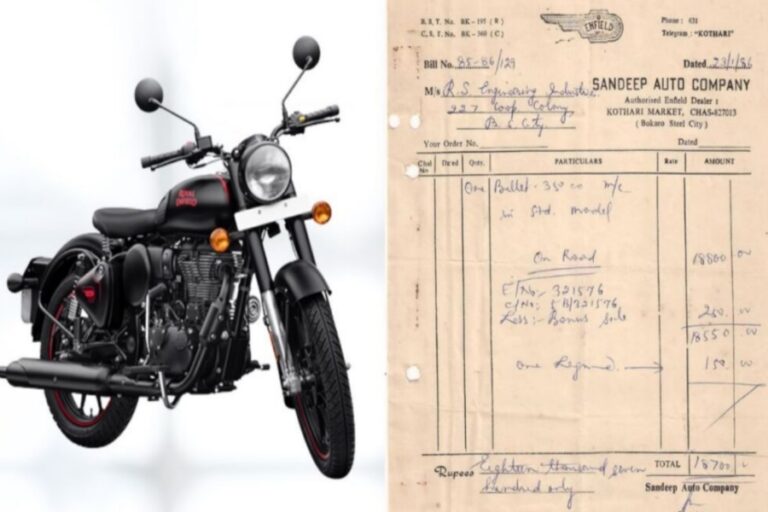 ROYAL
ENFIELD
B.S.T. No. BK-195 (R)
C.S.T. No. BK-360 (C)
ENFIELD
Phone : 631
Telegram : "KOTHARI"
Bill No. 85-86/129
Dated 23/1/86
M/s R.S. Engineering Industries
927 Coop Colony
B.S. City.
SANDEEP AUTO COMPANY
Authorised Enfield Dealer :
KOTHARI MARKET, CHAS-827013
( Bokaro Steel City )
Your Order No.
Dated
Chal No Dated Qnty. PARTICULARS Rate AMOUNT
One Bullet - 350 cc m/c
in Std. model
On Road 18800 00
E/No:- 321576
C/No:- 5B/321576,
Less:- Bonus 250. 00
18550 00
One 150 00
Rupees Eighteen thousand seven
hundred only
TOTAL 18700
Sandeep Auto Company